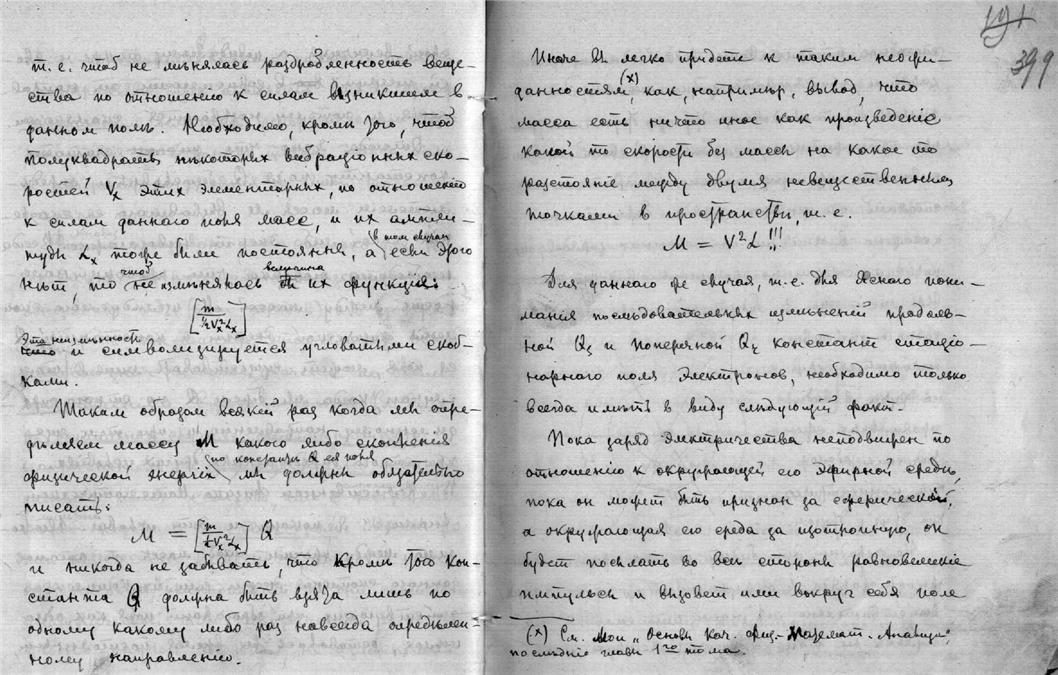 т. е. чтоб не мѣнялась раздробленность веще-
ства по отношенію к силам возникшем в
данном полѣ. Необходимо, кромѣ того, чтоб
полуквадраты нѣкоторых вибраціонных ско-
ростей Vx этих элементарных, по отношенію
к силам даннаго поля масс, и их ампли-
в том случаѣ
туды αx тоже были постоянны, а если этого
чтоб величина
нѣт, то не измѣнялось их функція:
[m / ½Vx²αx]
Эта неизмѣнность
и символизируется угловатыми скоб-
ками.
Таким образом всякій раз когда мы опре-
дѣляем массу M какого либо скопленія
по константѣ Q ея поля
физической энергіи мы должны обязательно
писать:
M = [m / ½Vx²αx] Q
и никогда не забывать, что кромѣ того кон-
станта Q должна быть взята лишь по
одному какому либо раз навсегда опредѣлен-
ному направленію.
191
399
Иначе мы легко придете к таким неожи-
данностям (x), как, напримѣр, вывод, что
масса есть ничто иное как произведеніе
какой то скорости без массы на какое то
разстояніе между двумя невещественными
точками в пространствѣ, т. е.
M = V²α!!!
Для даннаго же случая, т. е. для яснаго пони-
манія послѣдовательных измѣненій продоль-
ной Qs и поперечной Qz констант стаціо-
нарнаго поля электронов, необходимо только
всегда имѣть в виду слѣдующій факт.
Пока заряд электричества неподвижен по
отношенію к окружающей его эфирной средѣ,
пока он может быть признан за сферическій,
а окружающая его среда за изотропную, он
будет посылать во всѣ стороны равновеликіе
импульсы и вызовет ими вокруг себя поле
(x) См. Мои „Основы Кач. физ.-Математ. Анализа"
послѣднія главы 1го тома.